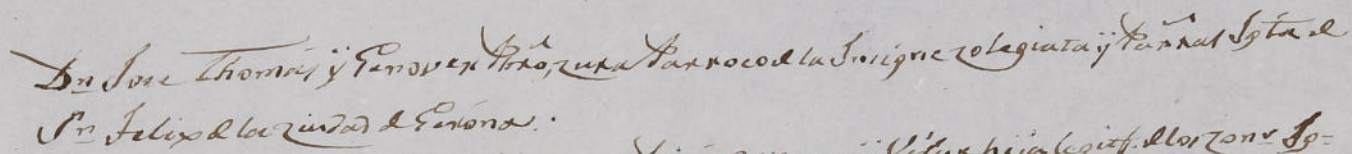 Dn Jose Thomás ÿ Genover Pbro, zura Parroco de la Insigne colegiata ÿ Parral Iglã de
Sn Felix de la ziudad de Gerona.
hija legitª de los zons